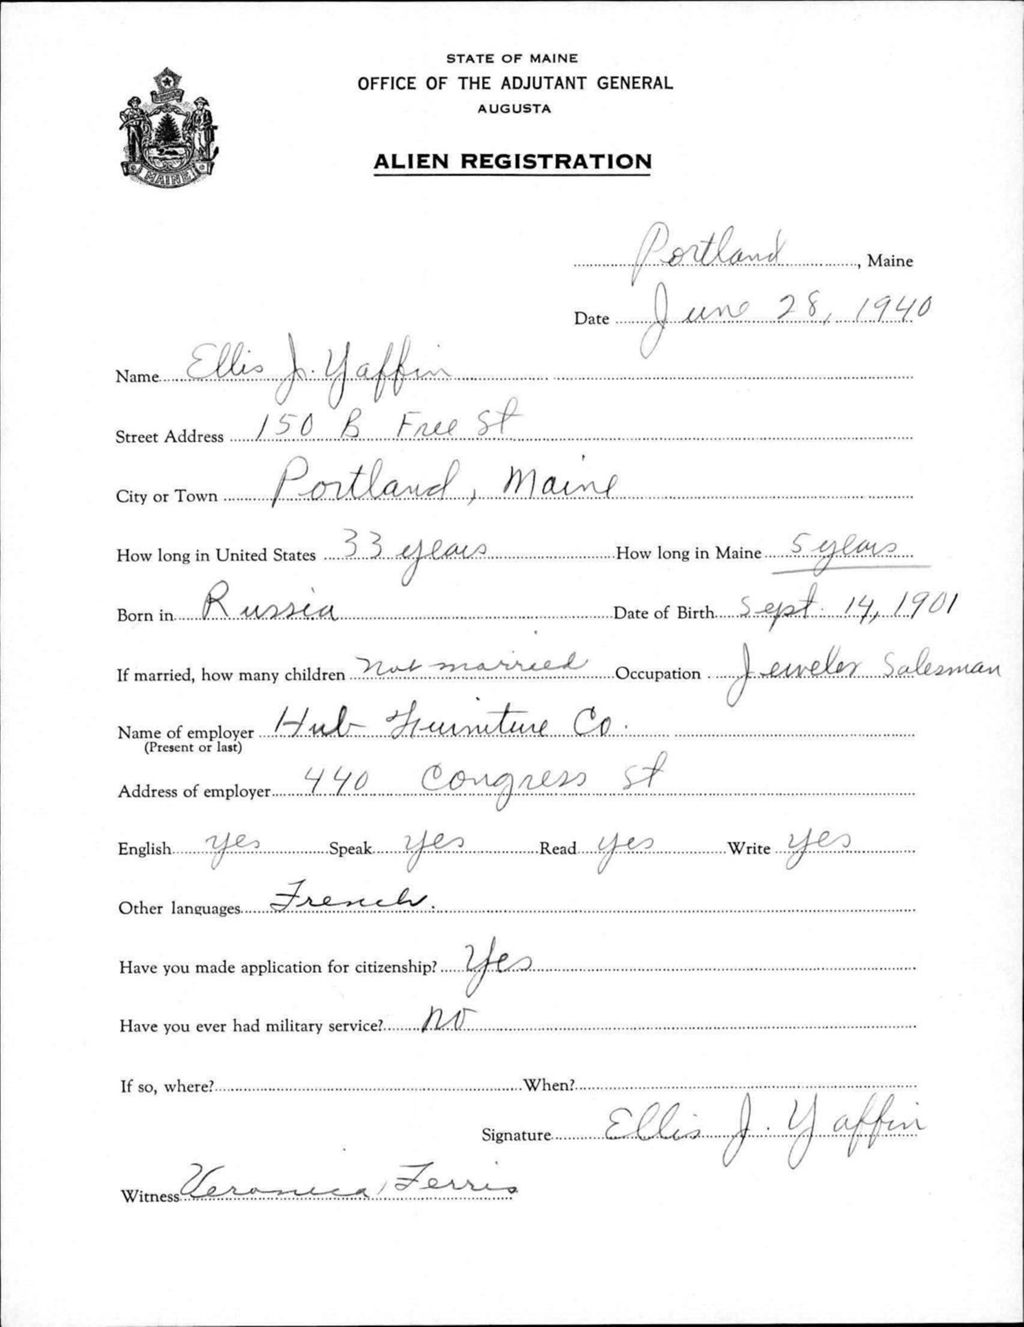 STATE OF MAINE
OFFICE OF THE ADJUTANT GENERAL
AUGUSTA
ALIEN REGISTRATION
MAINE
Portland, Maine
Date June 28, 1940
Name Ellis J. Yaffin
Street Address 150 B Free St
City or Town Portland, Maine
How long in United States 33 years How long in Maine 5 years
Born in Russia Date of Birth Sept. 14, 1901
If married, how many children not married Occupation Jeweler Salesman
Name of employer Hub Furniture Co.
(Present or last)
Address of employer 440 Congress St
English yes Speak yes Read yes Write yes
Other languages French.
Have you made application for citizenship? Yes
Have you ever had military service? no
If so, where? When?
Signature Ellis J. Yaffin
Witness Veronica Ferris